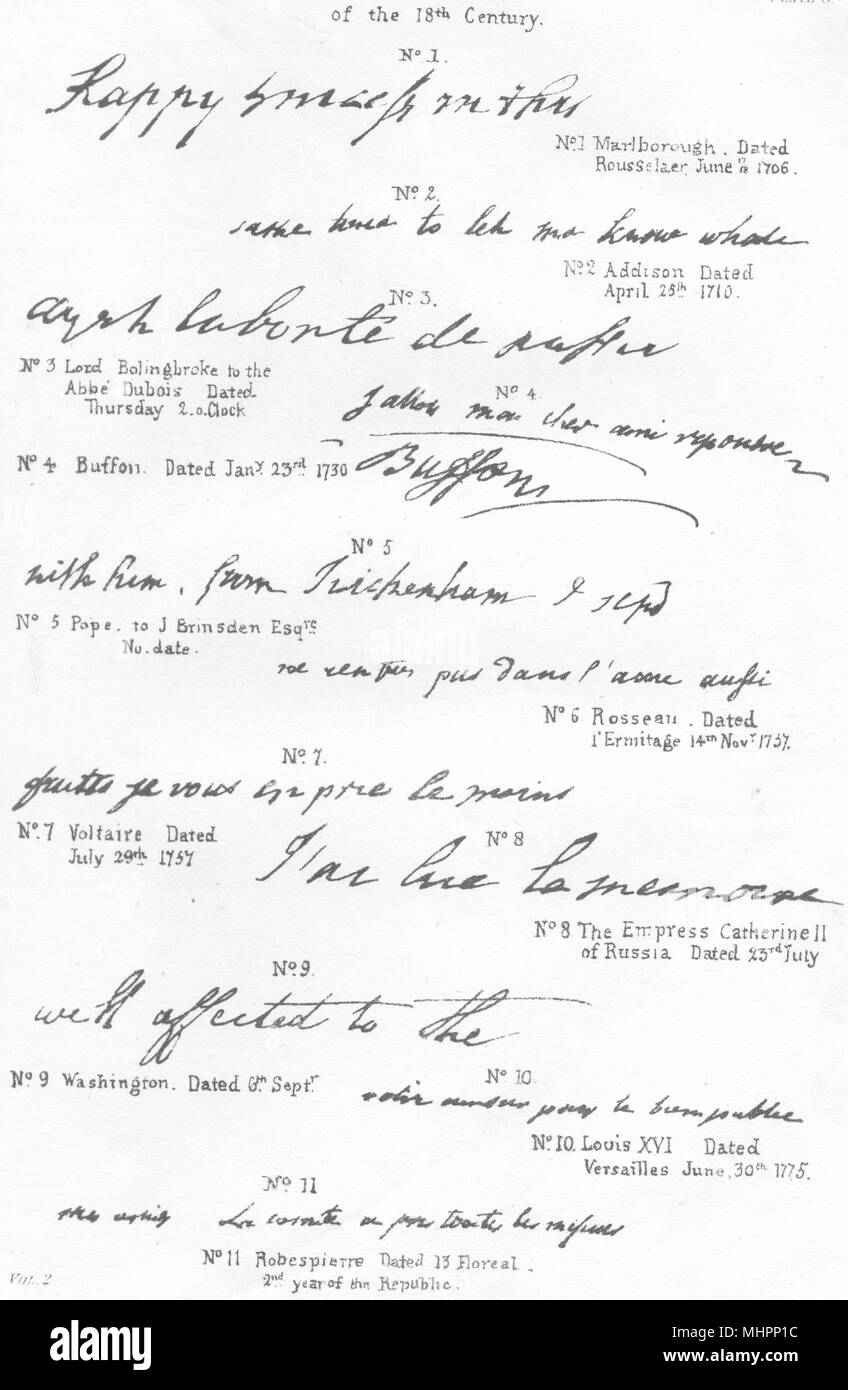 of the 18th Century.
No. 1.
Happy success in this
No. 1 Marlborough. Dated
Rousselaer, June 1706.
No. 2.
same time to let me know whole
No. 2 Addison Dated
April 25th 1710.
No. 3.
la bonté de
No. 3 Lord Bolingbroke to the
Abbé Dubois Dated
Thursday 2.o.Clock
No. 4
mon cher ami reponse
No. 4 Buffon. Dated Jany. 23rd 1730
Buffon
No. 5
with him, from Twickenham I
No. 5 Pope. to J Brinsden Esqre.
No. date.
ne rentres pas dans l'ame aussi
No. 6 Rosseau. Dated
l'Ermitage 14th Novr. 1757.
No. 7.
je vous en prie le moins
No. 7 Voltaire Dated
July 29th 1757
No. 8
J'ai lue la memoire
No. 8 The Empress Catherine II
of Russia Dated 23rd July
No. 9.
well affected to the
No. 9 Washington. Dated 6th Septr.
No. 10.
pour le bien public
No. 10. Louis XVI Dated
Versailles June, 30th 1775.
No. 11
mes amis Le comité a pris toutes les mesures
No. 11 Robespierre Dated 13 Floreal.
2nd year of the Republic.
Vol. 2
alamy
Image ID: MHPP1C
www.alamy.com